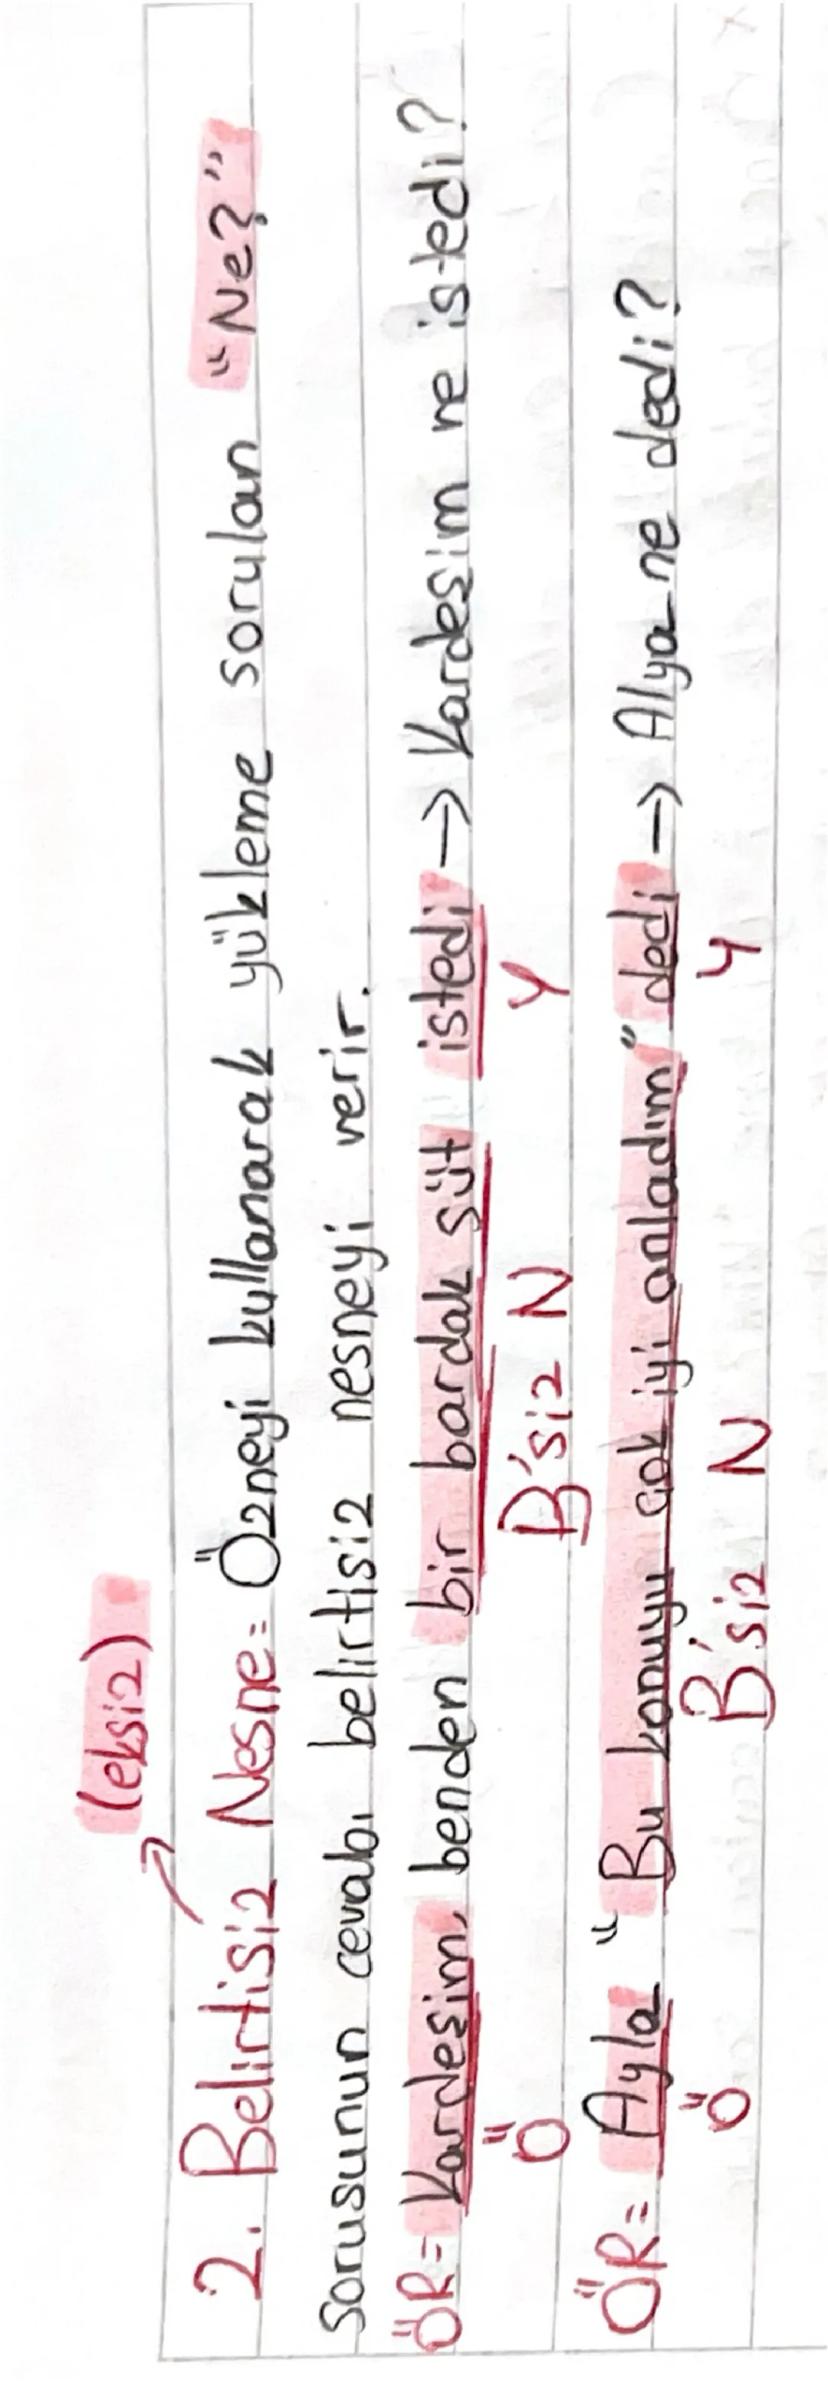 (eksiz)
2. Belirtisiz Nesne= Özneyi kullanarak yükleme sorulan "Ne?"
sorusunun cevabı belirtisiz nesneyi verir.
ÖR= Kardeşim, benden bir bardak süt istedi → Kardeşim ne istedi?
Ö B'siz N Y
ÖR= Ayla "Bu konuyu çok iyi anladım" dedi → Alya ne dedi?
Ö B'siz N Y